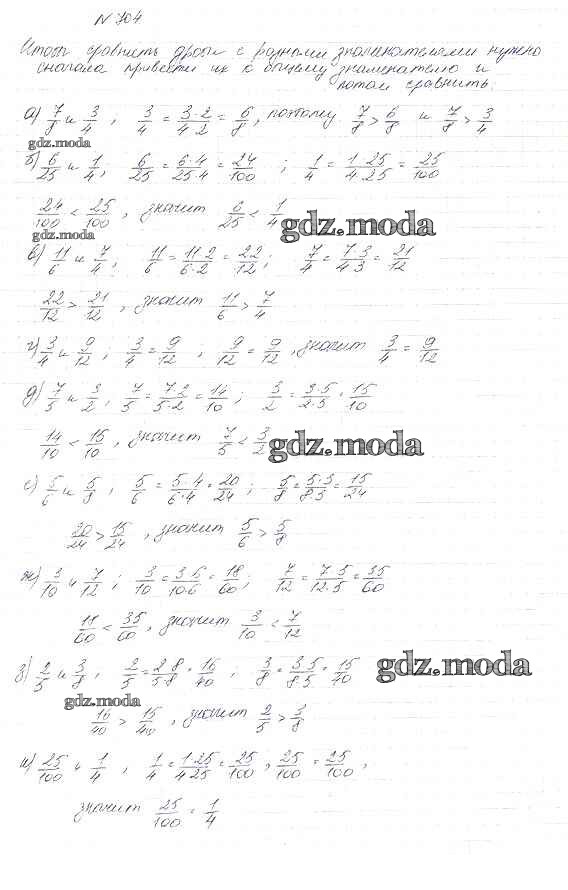 № 704
Чтобы сравнить дроби с разными знаменателями нужно
сначала привести их к общему знаменателю и
потом сравнить.
а) 7/8 и 3/4, 3/4 = 3·2/4·2 = 6/8, поэтому 7/8 > 6/8 и 7/8 > 3/4
gdz.moda
б) 6/25 и 1/4, 6/25 = 6·4/25·4 = 24/100 ; 1/4 = 1·25/4·25 = 25/100
24/100 < 25/100, значит 6/25 < 1/4
gdz.moda
gdz.moda
в) 11/6 и 7/4; 11/6 = 11·2/6·2 = 22/12; 7/4 = 7·3/4·3 = 21/12
22/12 > 21/12, значит 11/6 > 7/4
г) 3/4 и 9/12; 3/4 = 9/12 ; 9/12 = 9/12, значит 3/4 = 9/12
д) 7/5 и 3/2, 7/5 = 7·2/5·2 = 14/10; 3/2 = 3·5/2·5 = 15/10
14/10 < 15/10, значит 7/5 < 3/2
gdz.moda
е) 5/6 и 5/8, 5/6 = 5·4/6·4 = 20/24; 5/8 = 5·3/8·3 = 15/24
20/24 > 15/24, значит 5/6 > 5/8
ж) 3/10 и 7/12; 3/10 = 3·6/10·6 = 18/60; 7/12 = 7·5/12·5 = 35/60
11/60 < 35/60, значит 3/10 < 7/12
з) 2/5 и 3/8, 2/5 = 2·8/5·8 = 16/40 ; 3/8 = 3·5/8·5 = 15/40
gdz.moda
gdz.moda
16/40 > 15/40, значит 2/5 > 3/8
и) 25/100 и 1/4, 1/4 = 1·25/4·25 = 25/100, 25/100 = 25/100,
значит 25/100 = 1/4